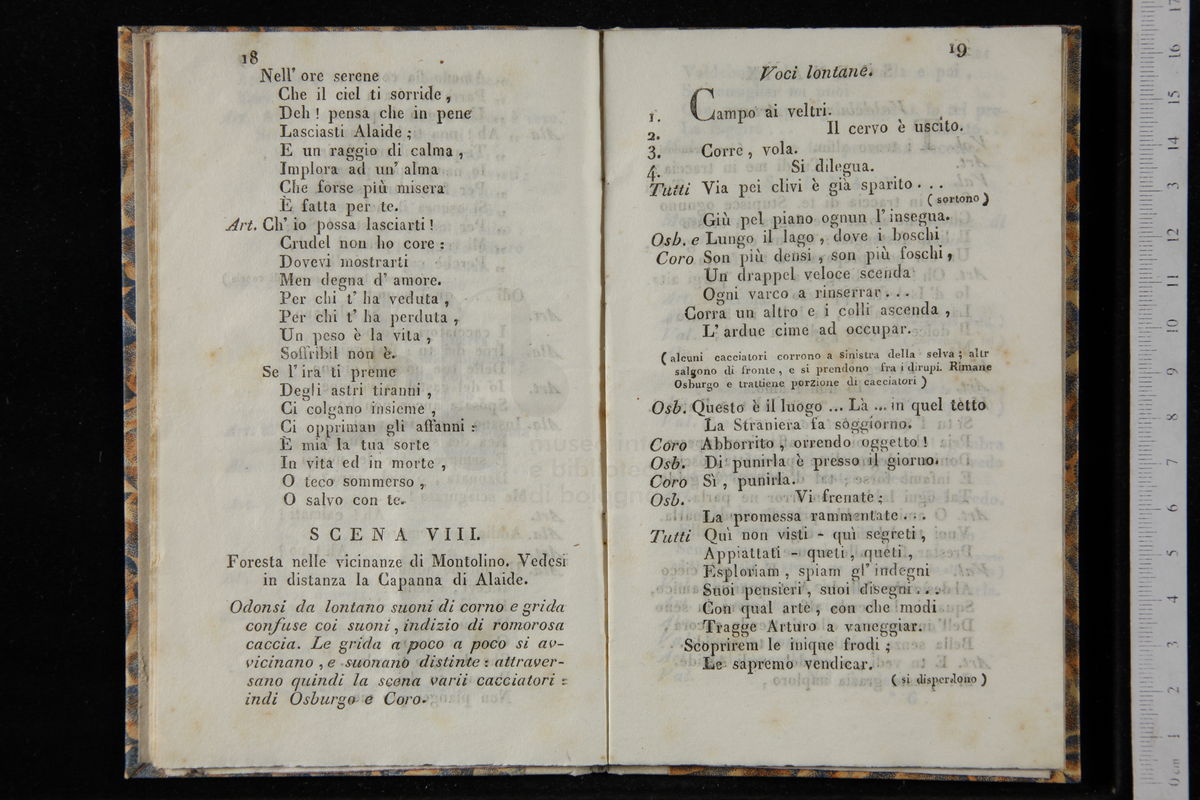 18
Nell' ore serene
Che il ciel ti sorride,
Deh! pensa che in pene
Lasciasti Alaide;
E un raggio di calma,
Implora ad un' alma
Che forse più misera
È fatta per te.
Art. Ch' io possa lasciarti!
Crudel non ho core:
Dovevi mostrarti
Men degna d' amore.
Per chi t' ha veduta,
Per chi t' ha perduta,
Un peso è la vita,
Soffribil non è.
Se l' ira ti preme
Degli astri tiranni,
Ci colgano insieme,
Ci oppriman gli affanni:
È mia la tua sorte
In vita ed in morte,
O teco sommerso,
O salvo con te.
SCENA VIII.
Foresta nelle vicinanze di Montolino. Vedesi
in distanza la Capanna di Alaide.
Odonsi da lontano suoni di corno e grida
confuse coi suoni, indizio di romorosa
caccia. Le grida a poco a poco si av-
vicinano, e suonano distinte: attraver-
sano quindi la scena varii cacciatori:
indi Osburgo e Coro.
19
Voci lontane.
1. Campo ai veltri.
2. Il cervo è uscito.
3. Corre, vola.
4. Si dilegua.
Tutti Via pei clivi è già sparito...
(sortono)
Giù pel piano ognun l' insegua.
Osb. e Lungo il lago, dove i boschi
Coro Son più densi, son più foschi,
Un drappel veloce scenda
Ogni varco a rinserrar...
Corra un altro e i colli ascenda,
L' ardue cime ad occupar.
(alcuni cacciatori corrono a sinistra della selva; altr
salgono di fronte, e si prendono fra i dirupi. Rimane
Osburgo e trattiene porzione di cacciatori)
Osb. Questo è il luogo ... Là ... in quel tetto
La Straniera fa soggiorno.
Coro Abborrito, orrendo oggetto!
Osb. Di punirla è presso il giorno.
Coro Sì, punirla.
Osb. Vi frenate:
La promessa rammentate...
Tutti Quì non visti - quì segreti,
Appiattati - queti, queti,
Esploriam, spiam gl' indegni
Suoi pensieri, suoi disegni...
Con qual arte, con che modi
Tragge Arturo a vaneggiar.
Scoprirem le inique frodi;
Le sapremo vendicar.
(si disperdono)
museo int
e bibliote
di bologna
0 cm 1 2 3 4 5 6 7 8 9 10 11 12 13 14 15 16 17